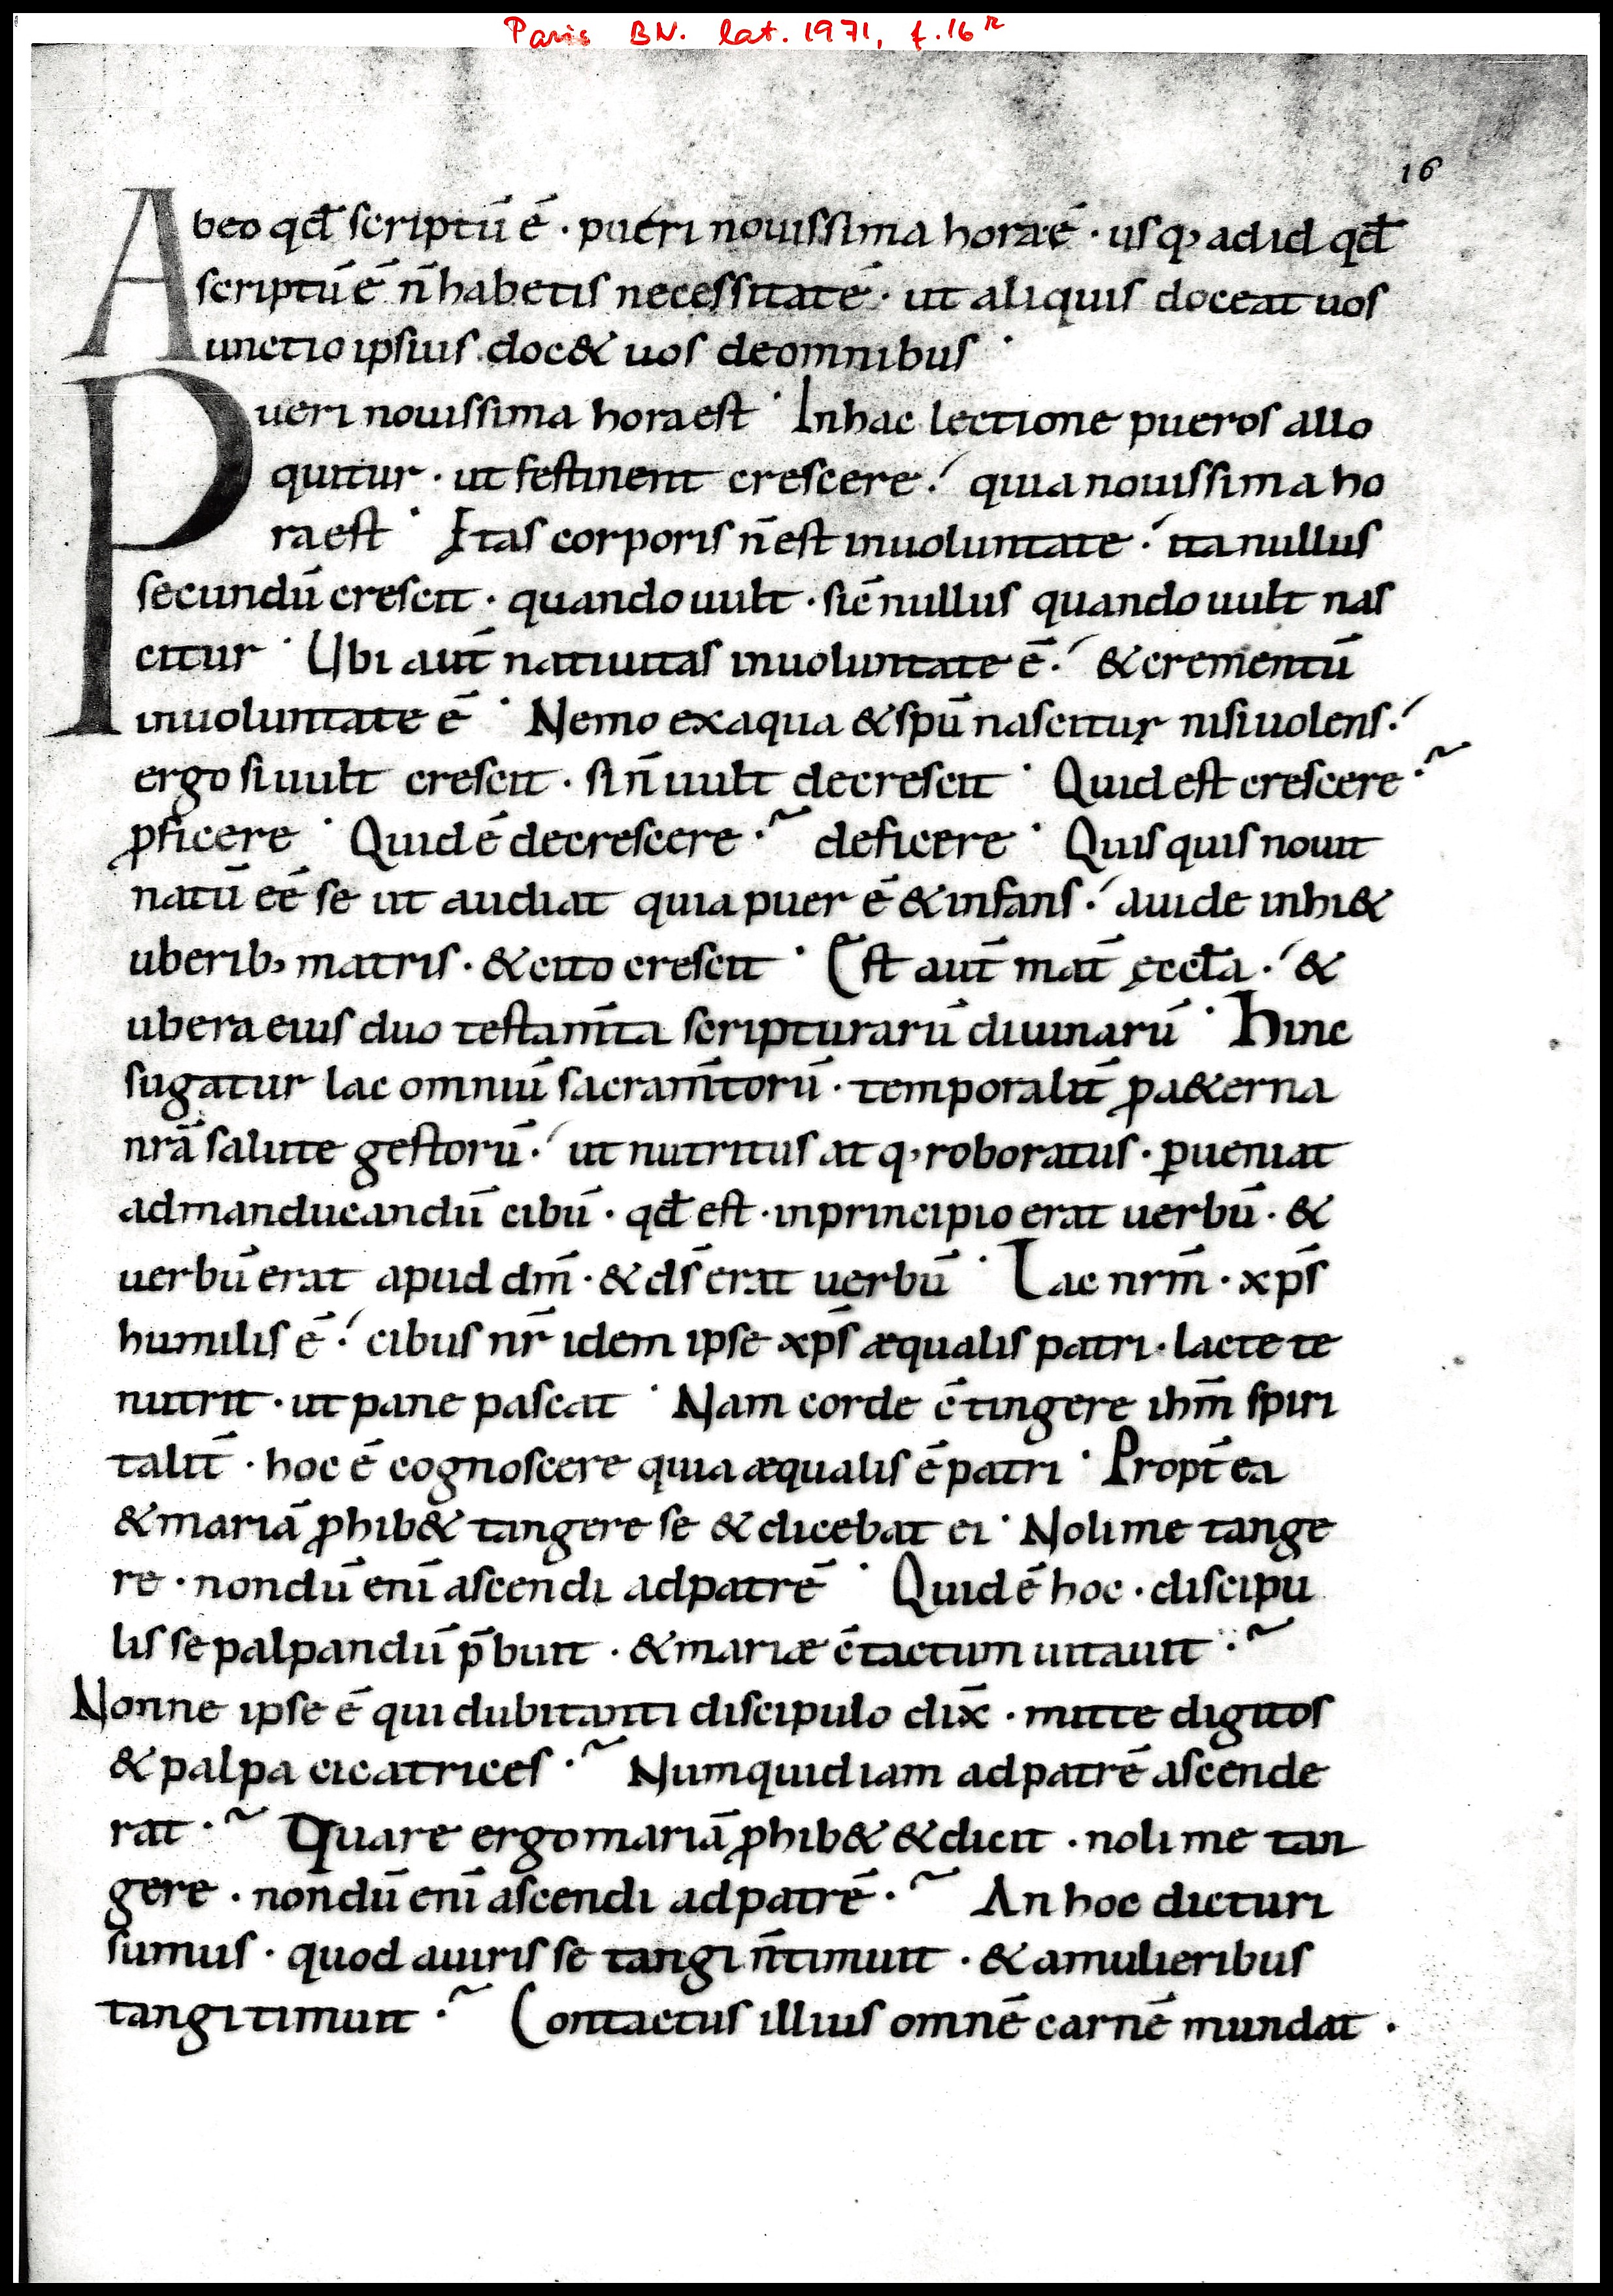 Paris BN. lat. 1971, f. 16r
16
Abeo qđ scriptū ē · pueri nouissima hora ē · usq; ad id qđ
scriptū ē n̄ habetis necessitatē · ut aliquis doceat uos
unctio ipsius doc& uos de omnibus ·
Pueri nouissima hora est · In hac lectione pueros allo
quitur · ut festinent crescere · quia nouissima ho
ra est · Ętas corporis n̄ est in uoluntate · ita nullus
secundū crescit · quando uult · sic̄ nullus quando uult nas
citur · Ubi aut̄ natiuitas in uoluntate ē · & crementū
in uoluntate ē · Nemo ex aqua & sp̄u nascitur nisi uolens ·
ergo si uult crescit · si n̄ uult decrescit · Quid est crescere ·~
ꝓficere · Quid ē decrescere ·~ deficere · Quisquis nouit
natū eē se ut audiat quia puer ē & infans · auide inhi&
uberib; matris · & cito crescit · Est aut̄ mat̄ ęcctā · &
ubera eius duo testam̄ta scripturarū diuinarū · Hinc
sugatur lac omniū sacram̄torū · temporalit̄ ꝓ a&erna
nr̄a salute gestorū · ut nutritus atq; roboratus · ꝑueniat
ad manducandū cibū · qđ est · in principio erat uerbū · &
uerbū erat apud dm̄ · & ds̄ erat uerbū · Lac nrm̄ · xp̄s
humilis ē · cibus nr̄ idem ipse xp̄s æqualis patri · lacte te
nutrit · ut pane pascat · Nam corde c̄tingere ihm̄ spiri
talit̄ · hoc ē cognoscere quia æqualis ē patri · Propt̄ea
& mariā ꝓhib& tangere se & dicebat ei · Noli me tange
re · nondū enī ascendi ad patrē · Quid ē hoc · discipu
lis se palpandū p̄buit · & mariæ c̄tactum uitauit ·~
Nonne ipse ē qui dubitanti discipulo dix̄ · mitte digitos
& palpa cicatrices ·~ Numquid iam ad patrē ascende
rat ·~ Quare ergo mariā ꝓhib& & dicit · noli me tan
gere · nondū enī ascendi ad patrē ·~ An hoc dicturi
sumus · quod a uiris se tangi n̄ timuit · & a mulieribus
tangi timuit ·~ Contactus illius omnē carnē mundat ·